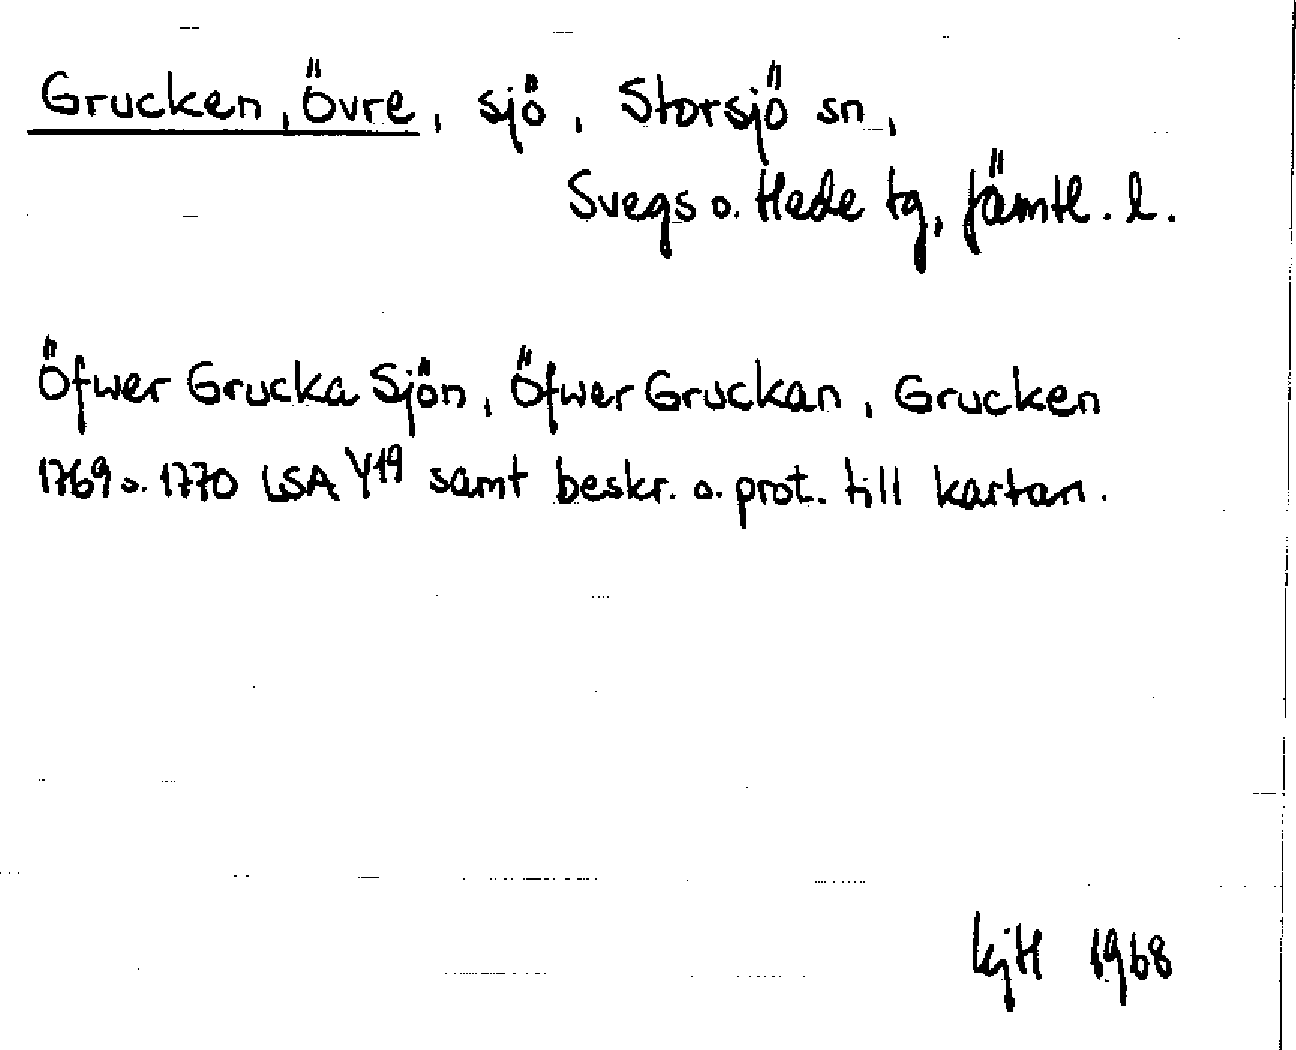 Grucken, Övre, sjö, Storsjö sn,
Svegs o. Hede tg, Jämtl. l.
Öfwer Grucka Sjön, Öfwer Gruckan, Grucken
1769 o. 1770 LSA Y19 samt beskr. o. prot. till kartan.
KjH 1968